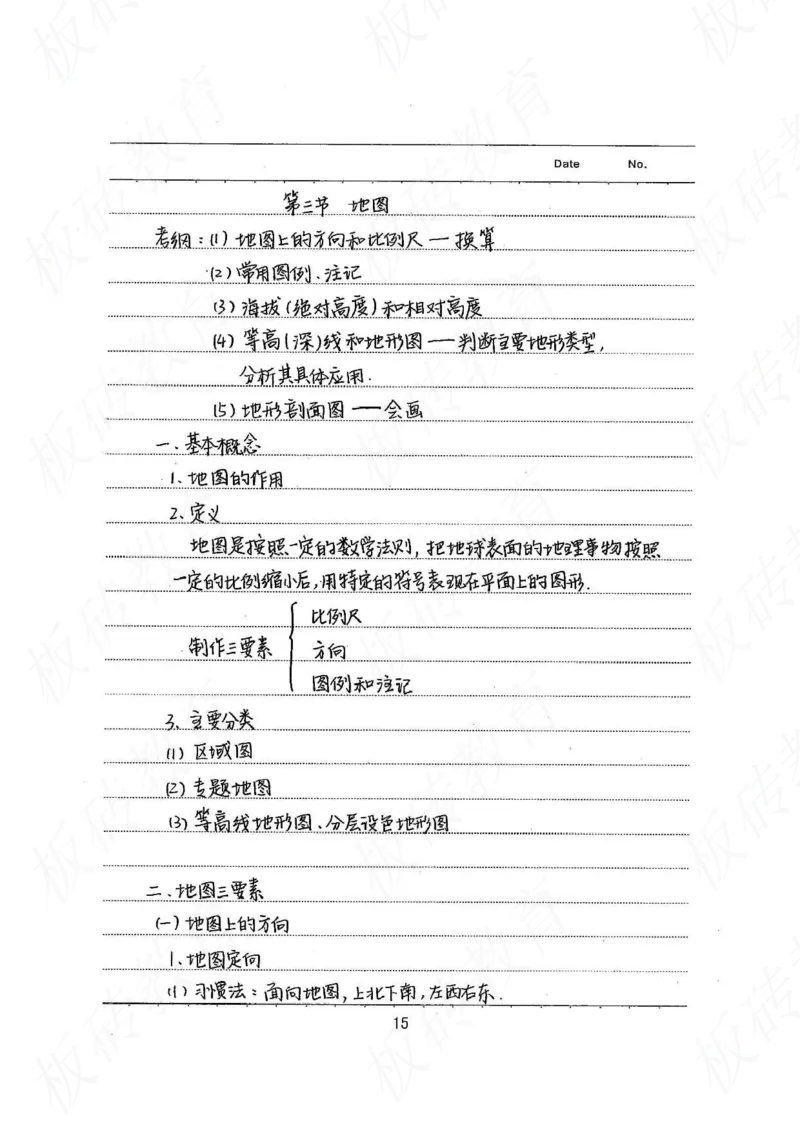 Date No.
第三节 地图
考纲:(1) 地图上的方向和比例尺 — 换算
(2) 常用图例、注记
(3) 海拔(绝对高度)和相对高度
(4) 等高(深)线和地形图 — 判断主要地形类型,
分析其具体应用.
(5) 地形剖面图 — 会画
一.基本概念
1、地图的作用
2、定义
地图是按照一定的数学法则,把地球表面的地理事物按照
一定的比例缩小后,用特定的符号表现在平面上的图形.
比例尺
制作三要素 方向
图例和注记
3、主要分类
(1) 区域图
(2) 专题地图
(3) 等高线地形图、分层设色地形图
二.地图三要素
(一) 地图上的方向
1、地图定向
(1) 习惯法:面向地图,上北下南,左西右东.
15
板砖教育